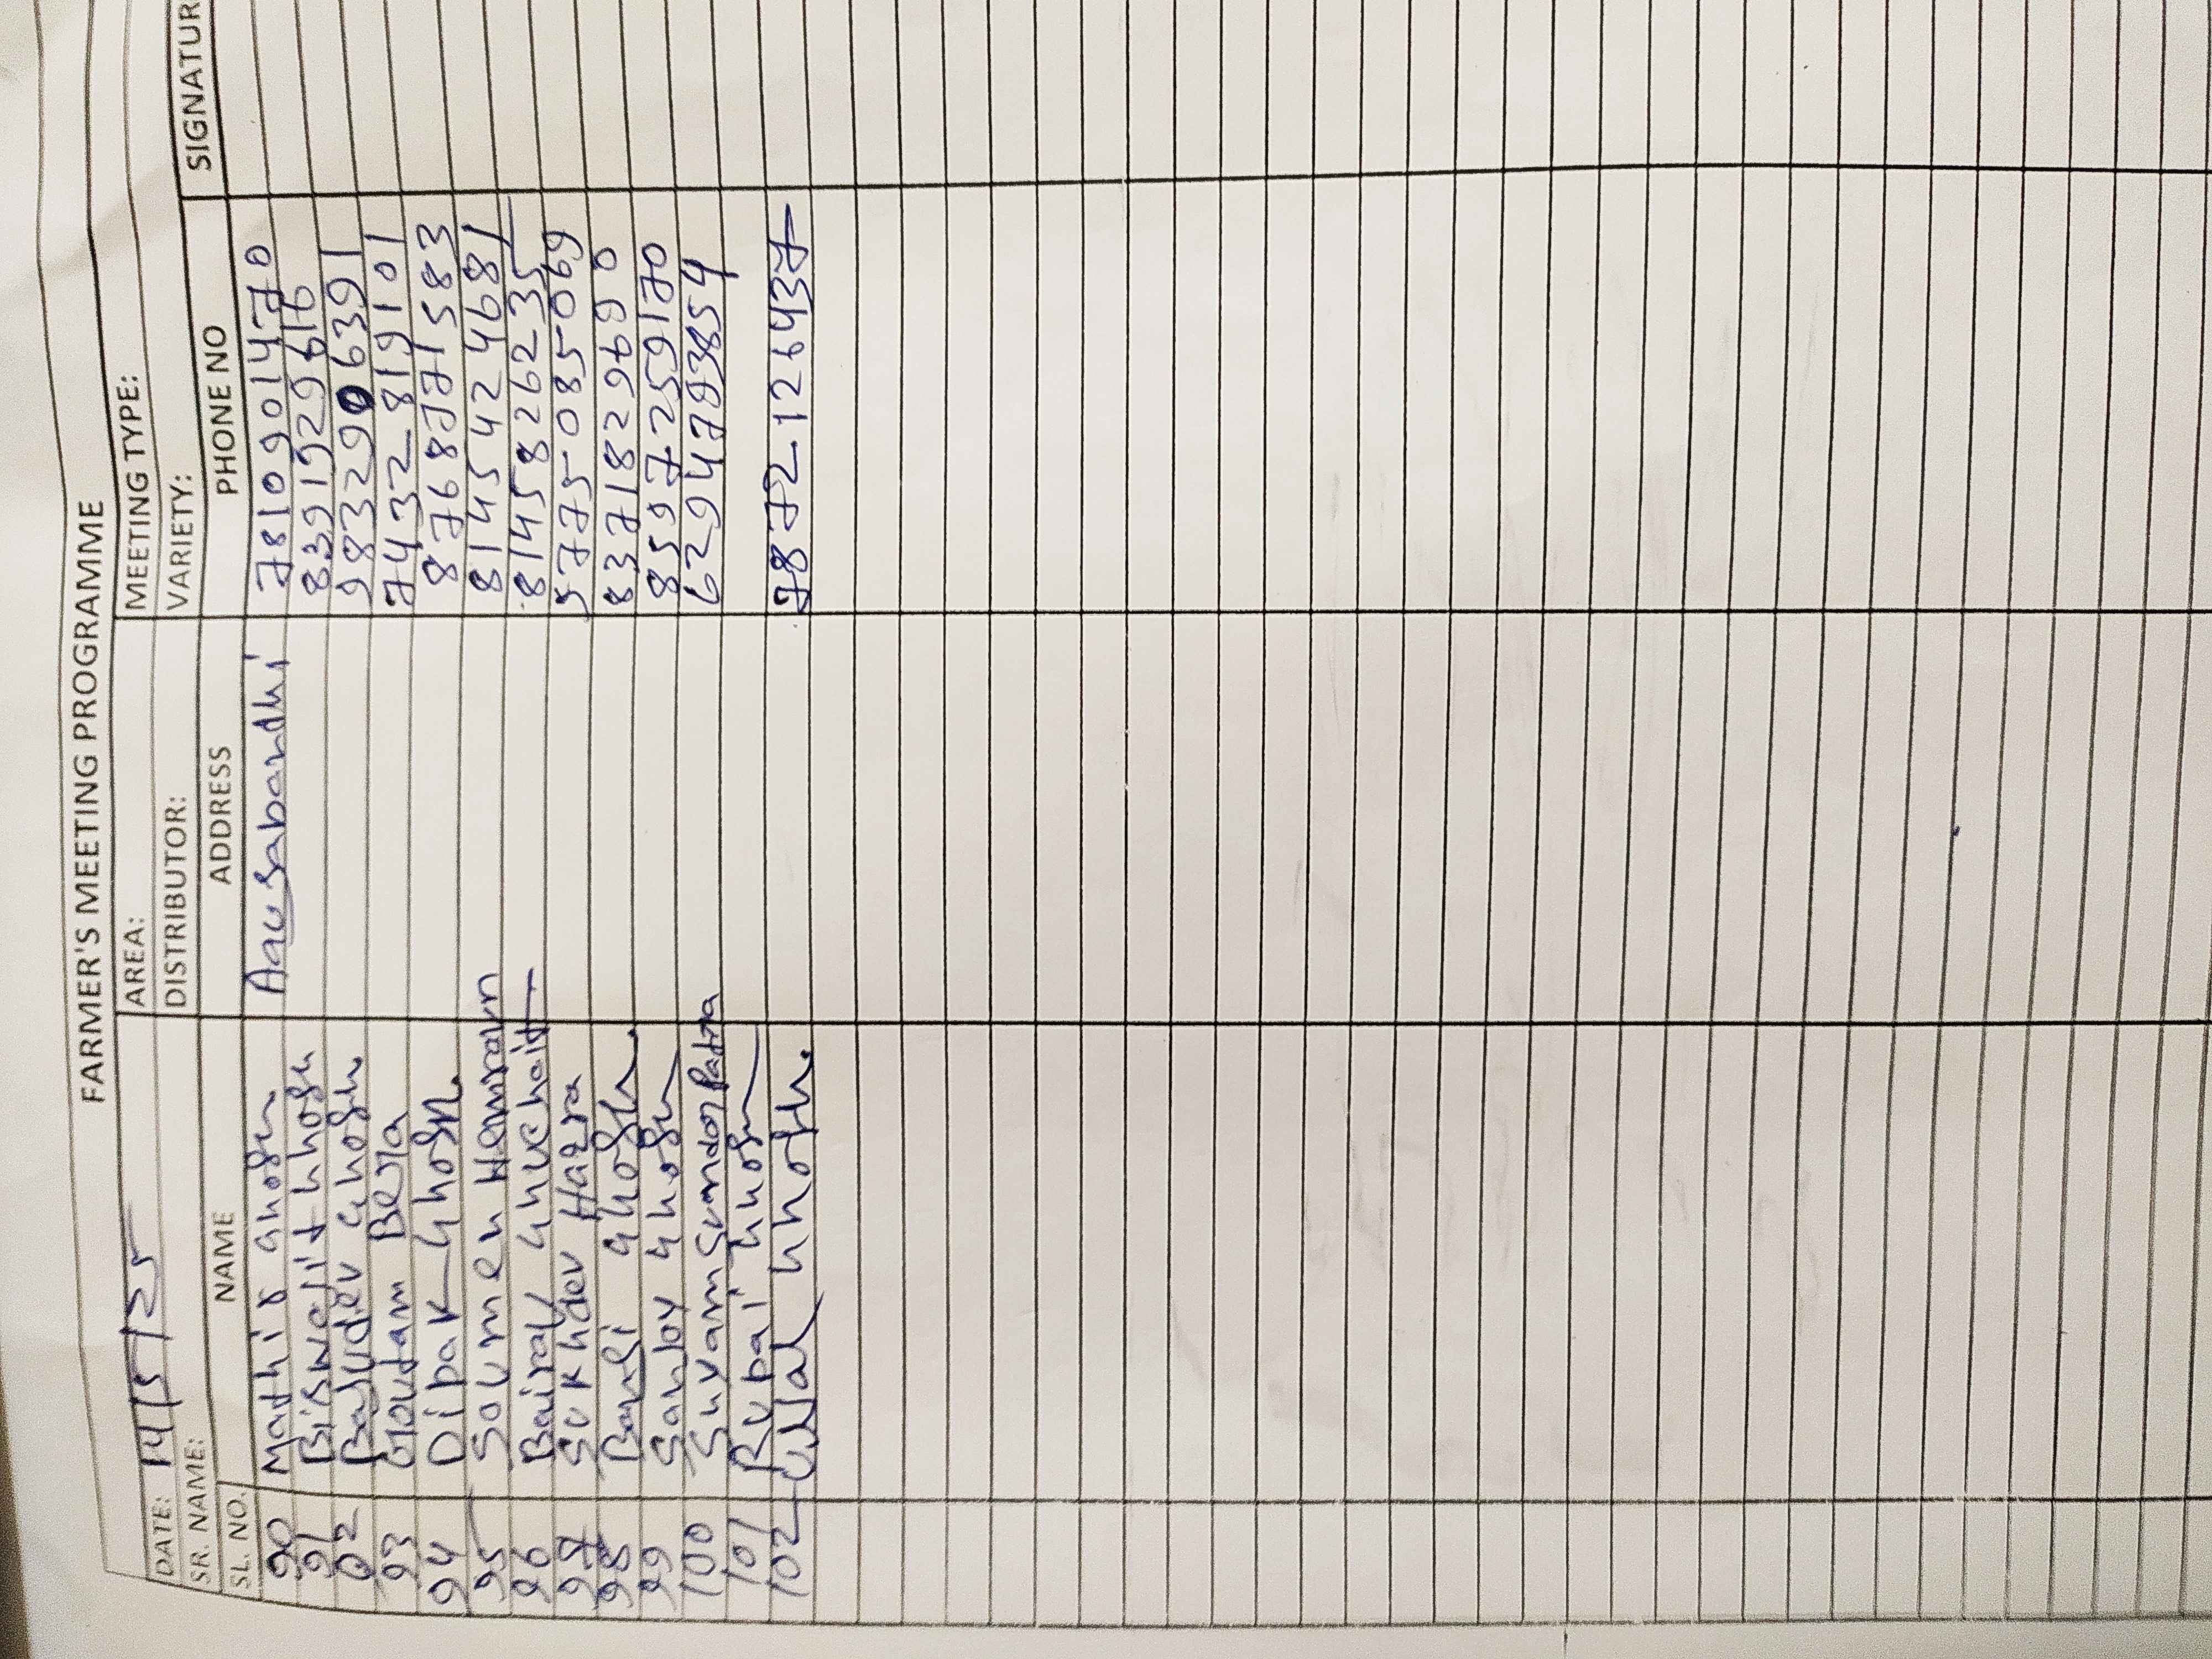 FARMER'S MEETING PROGRAMME
DATE: 14/5/25 AREA: MEETING TYPE:
SR. NAME: DISTRIBUTOR: VARIETY:
SL. NO. NAME ADDRESS PHONE NO SIGNATUR
90 Mathis Ghosh Aausabandhi 7810901470
91 Biswajit Ghosh 8391929616
92 Basudev Ghosh 9832906391
93 Goutam Bera 7432819101
94 Dipak Ghosh 8768771583
95 Soumen Hemram 8145424681
96 Bairab Ghuchait 8145826235
97 Sukhdev Hazra 5775085069
98 Bansi Ghosh 8371829690
99 Sanjoy Ghosh 8597259170
100 Suvam Sundor Patra 6294789854
101 Rupai Ghosh
102 Ghosh 7872126437